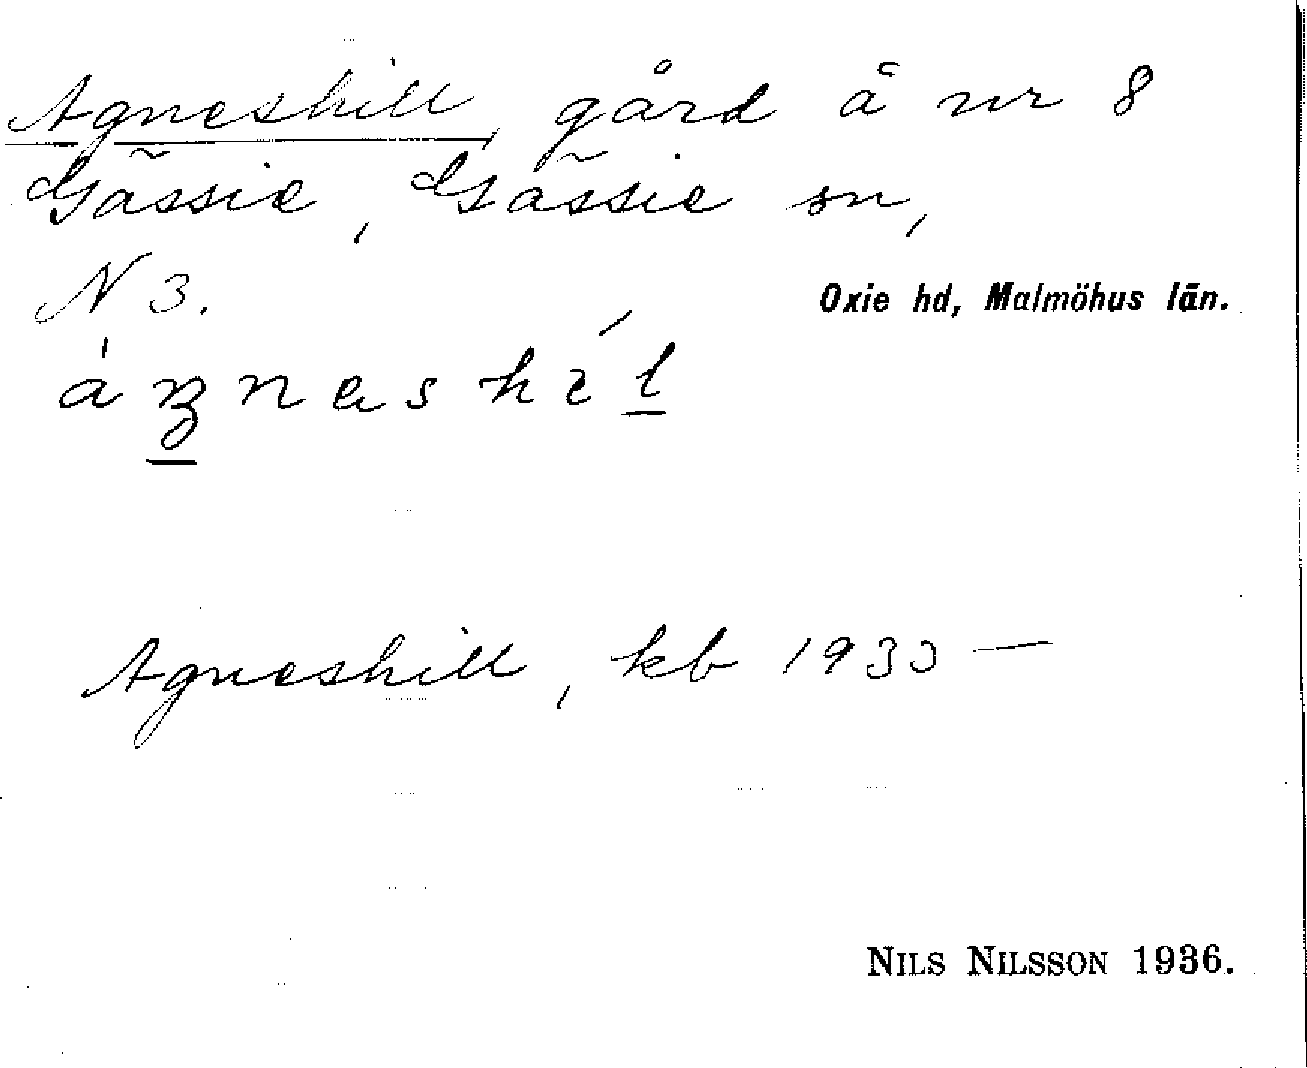 Agneshill, gård å nr 8
Gässie, Gässie sn,
N 3.
Oxie hd, Malmöhus län.
Agneshill, kb 1933 —
NILS NILSSON 1936.